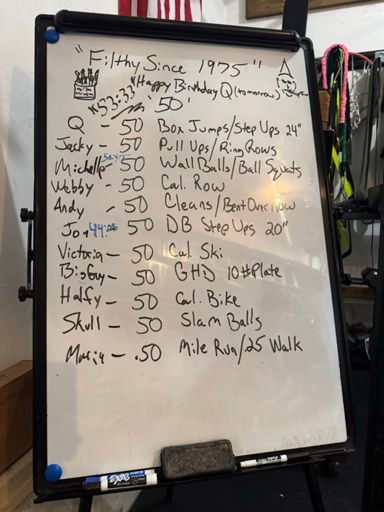 "Filthy Since 1975"
"Happy Birthday Q (tomorrow)
*53:33
'50'
Q - 50 Box Jumps/Step Ups 24"
Jacky - 50 Pull Ups/Ring Rows
Michelle - 50 Wall Balls/Ball Squats
Webby - 50 Cal. Row
Andy - 50 Cleans/Bent Over Row
Jon 44: - 50 DB Step Ups 20"
Victoria - 50 Cal. Ski
BigGuy - 50 GHD 10# Plate
Halfy - 50 Cal. Bike
Skull - 50 Slam Balls
Maria - .50 Mile Run/.25 Walk
EXPO